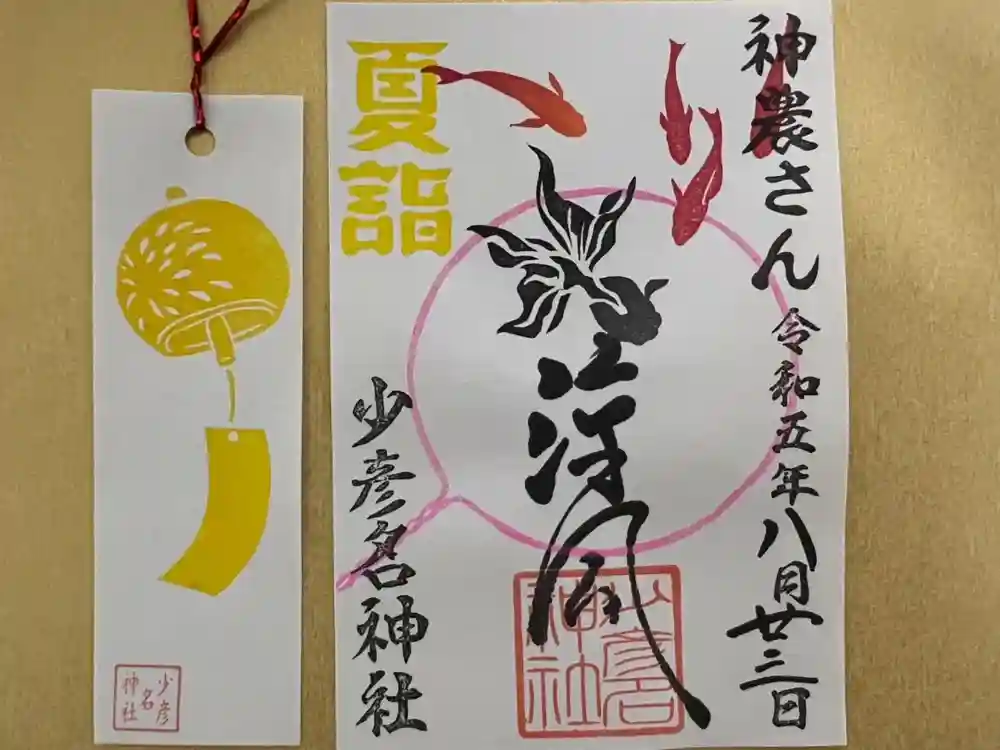 神農さん 令和五年八月廿三日
夏詣
少彦名神社
少彦名
神社
少彦
名
神社